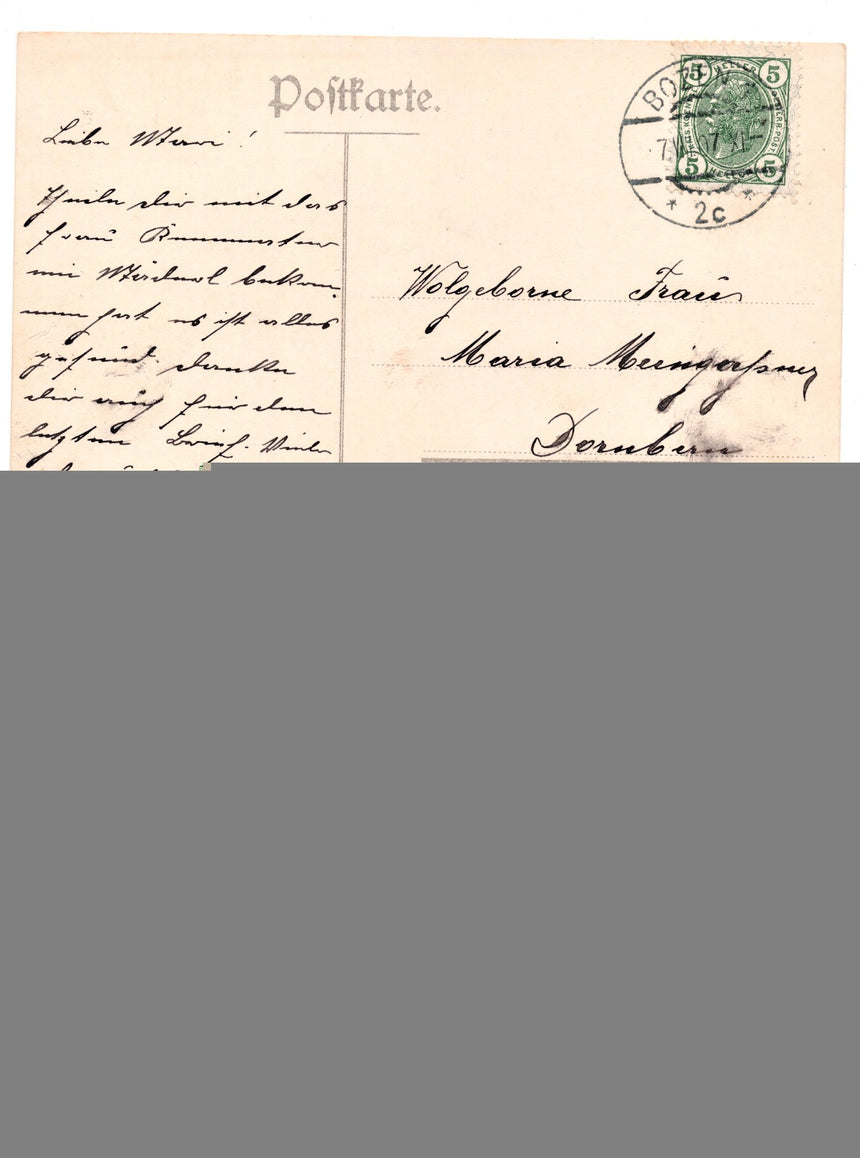 Postkarte.
BOZEN
5 HELLER 5
7. 07 XI
5 5
* 2c *
Liebe Mari!
Theile dir mit das
Frau
ein Mäderl bekom-
men hat es ist alles
gesund. danke
dir auch für den
letzten Brief. Viele
Wolgeborne Frau
Maria
Dornbirn